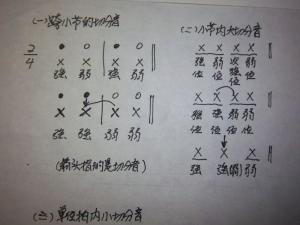 (一)跨小节的切分音
2/4
● ○ ● ○
X X X X
强 弱 强 弱
● ○ ● ○
X X X X
强 强 弱 弱
(箭头指的是切分音)
(二)小节内大切分音
X X X X
强 弱 次强 弱
位 位 位 位
X X X X
强 弱 强 弱
位 位 位 位
X X X
强 强(弱) 弱
(三)单位拍内小切分音